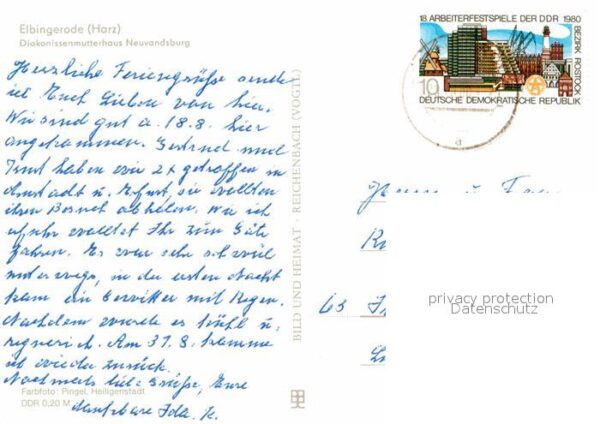 Elbingerode (Harz)
Diakonissenmutterhaus Neuvandsburg
18. ARBEITERFESTSPIELE DER DDR 1980
BEZIRK ROSTOCK
10
DEUTSCHE DEMOKRATISCHE REPUBLIK
Herzliche Feriengrüße sende
ich Euch Lieben von hier.
Wir sind gut a. 18.8. hier
angekommen. Gertrud und
haben wir 2x getroffen in
Arnstadt u. Erfurt, sie wollten
ihren Besuch abholen. Wie ich
erfuhr wolltet Ihr zum
fahren. Es war sehr schwül
unterwegs, in der ersten Nacht
kam ein Gewitter mit Regen.
Nachdem wurde es kühl u.
regnerisch. Am 31.8. komme
ich wieder zurück.
Nochmals liebe Grüße, Eure
dankbare Ida. K.
Farbfoto: Pingel, Heiligenstadt
DDR 0,20 M
BILD UND HEIMAT · REICHENBACH (VOGTL)
63
privacy protection
Datenschutz